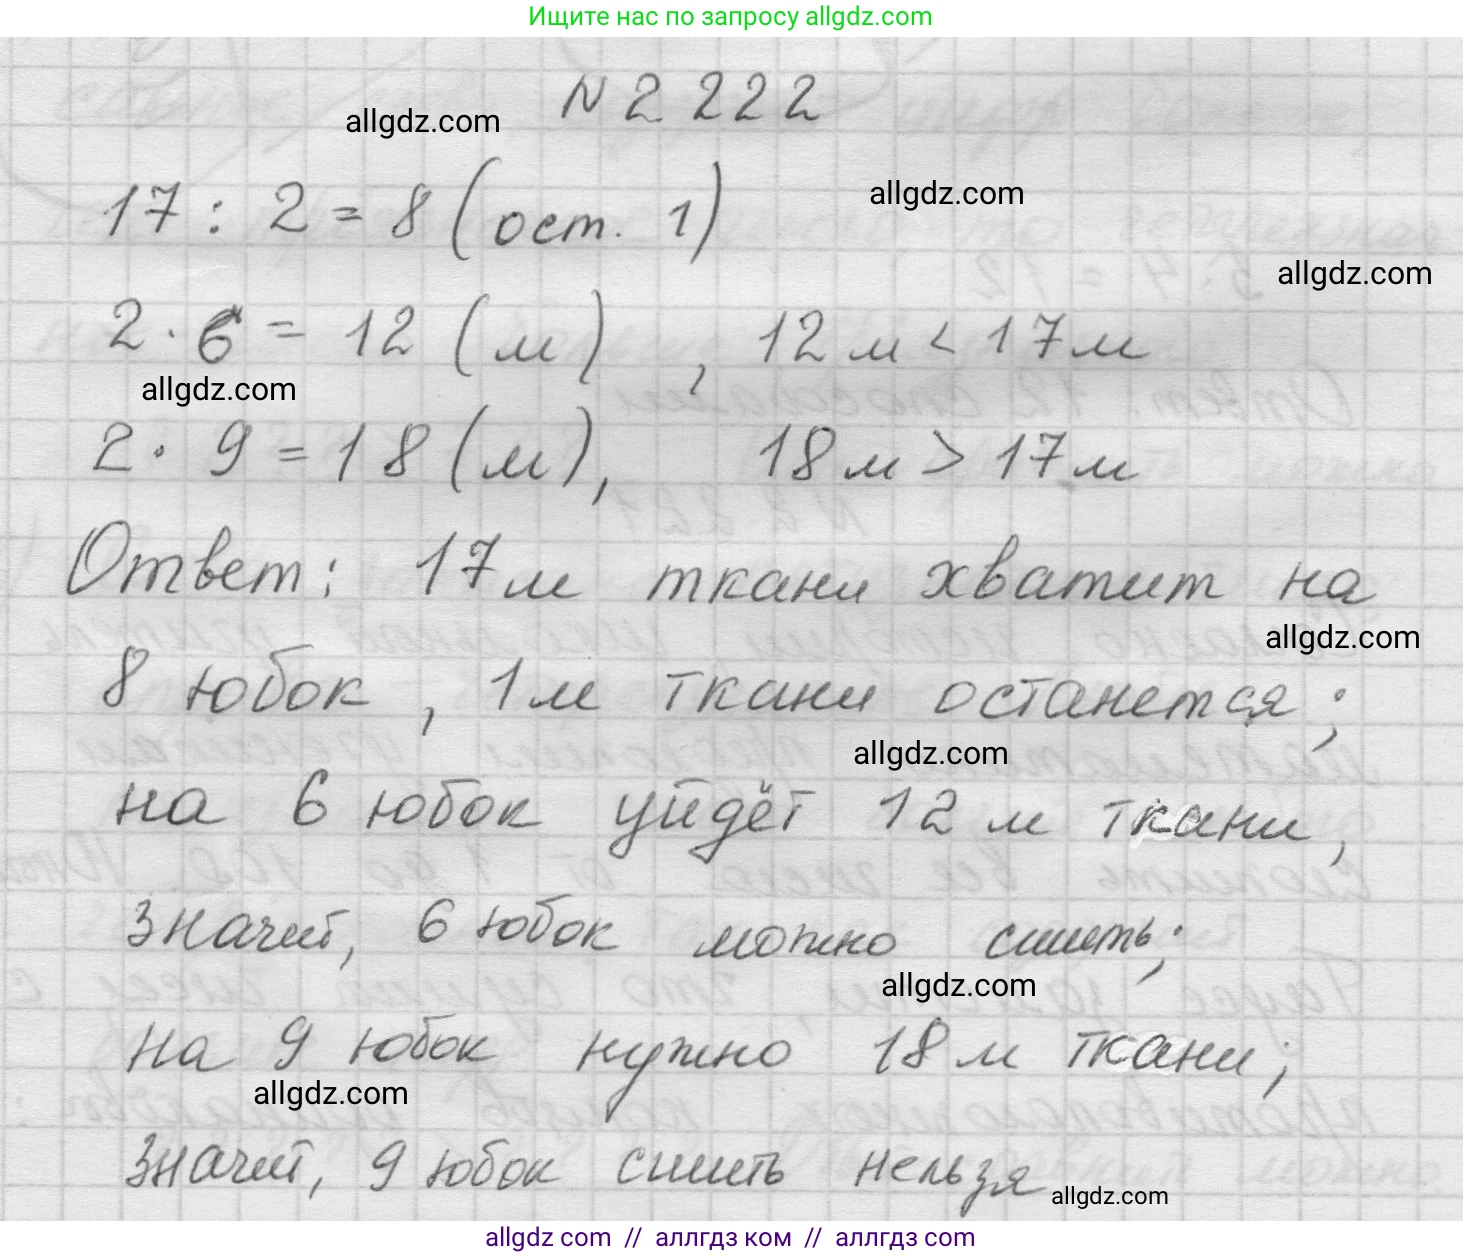 Ищите нас по запросу allgdz.com
N 2 222
allgdz.com
17 : 2 = 8 (ост. 1)
allgdz.com
allgdz.com
2 · 6 = 12 (м) , 12 м < 17 м
allgdz.com
2 · 9 = 18 (м), 18 м > 17 м
Ответ: 17 м ткани хватит на
allgdz.com
8 юбок, 1 м ткани останется;
allgdz.com
на 6 юбок уйдёт 12 м ткани,
значит, 6 юбок можно сшить;
allgdz.com
на 9 юбок нужно 18 м ткани;
allgdz.com
значит, 9 юбок сшить нельзя
allgdz.com
allgdz com // аллгдз ком // аллгдз com